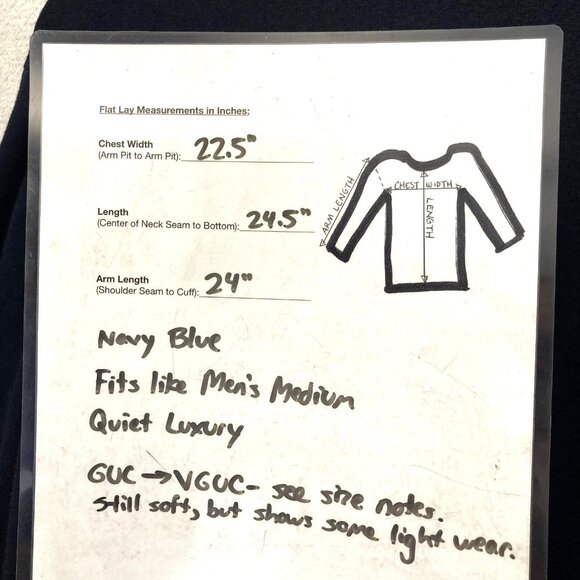 Flat Lay Measurements in Inches:
Chest Width
(Arm Pit to Arm Pit): 22.5"
Length
(Center of Neck Seam to Bottom): 24.5"
Arm Length
(Shoulder Seam to Cuff): 24"
ARM LENGTH
CHEST WIDTH
LENGTH
Navy Blue
Fits like Men's Medium
Quiet Luxury
GUC → VGUC - see size notes.
still soft, but shows some light wear.